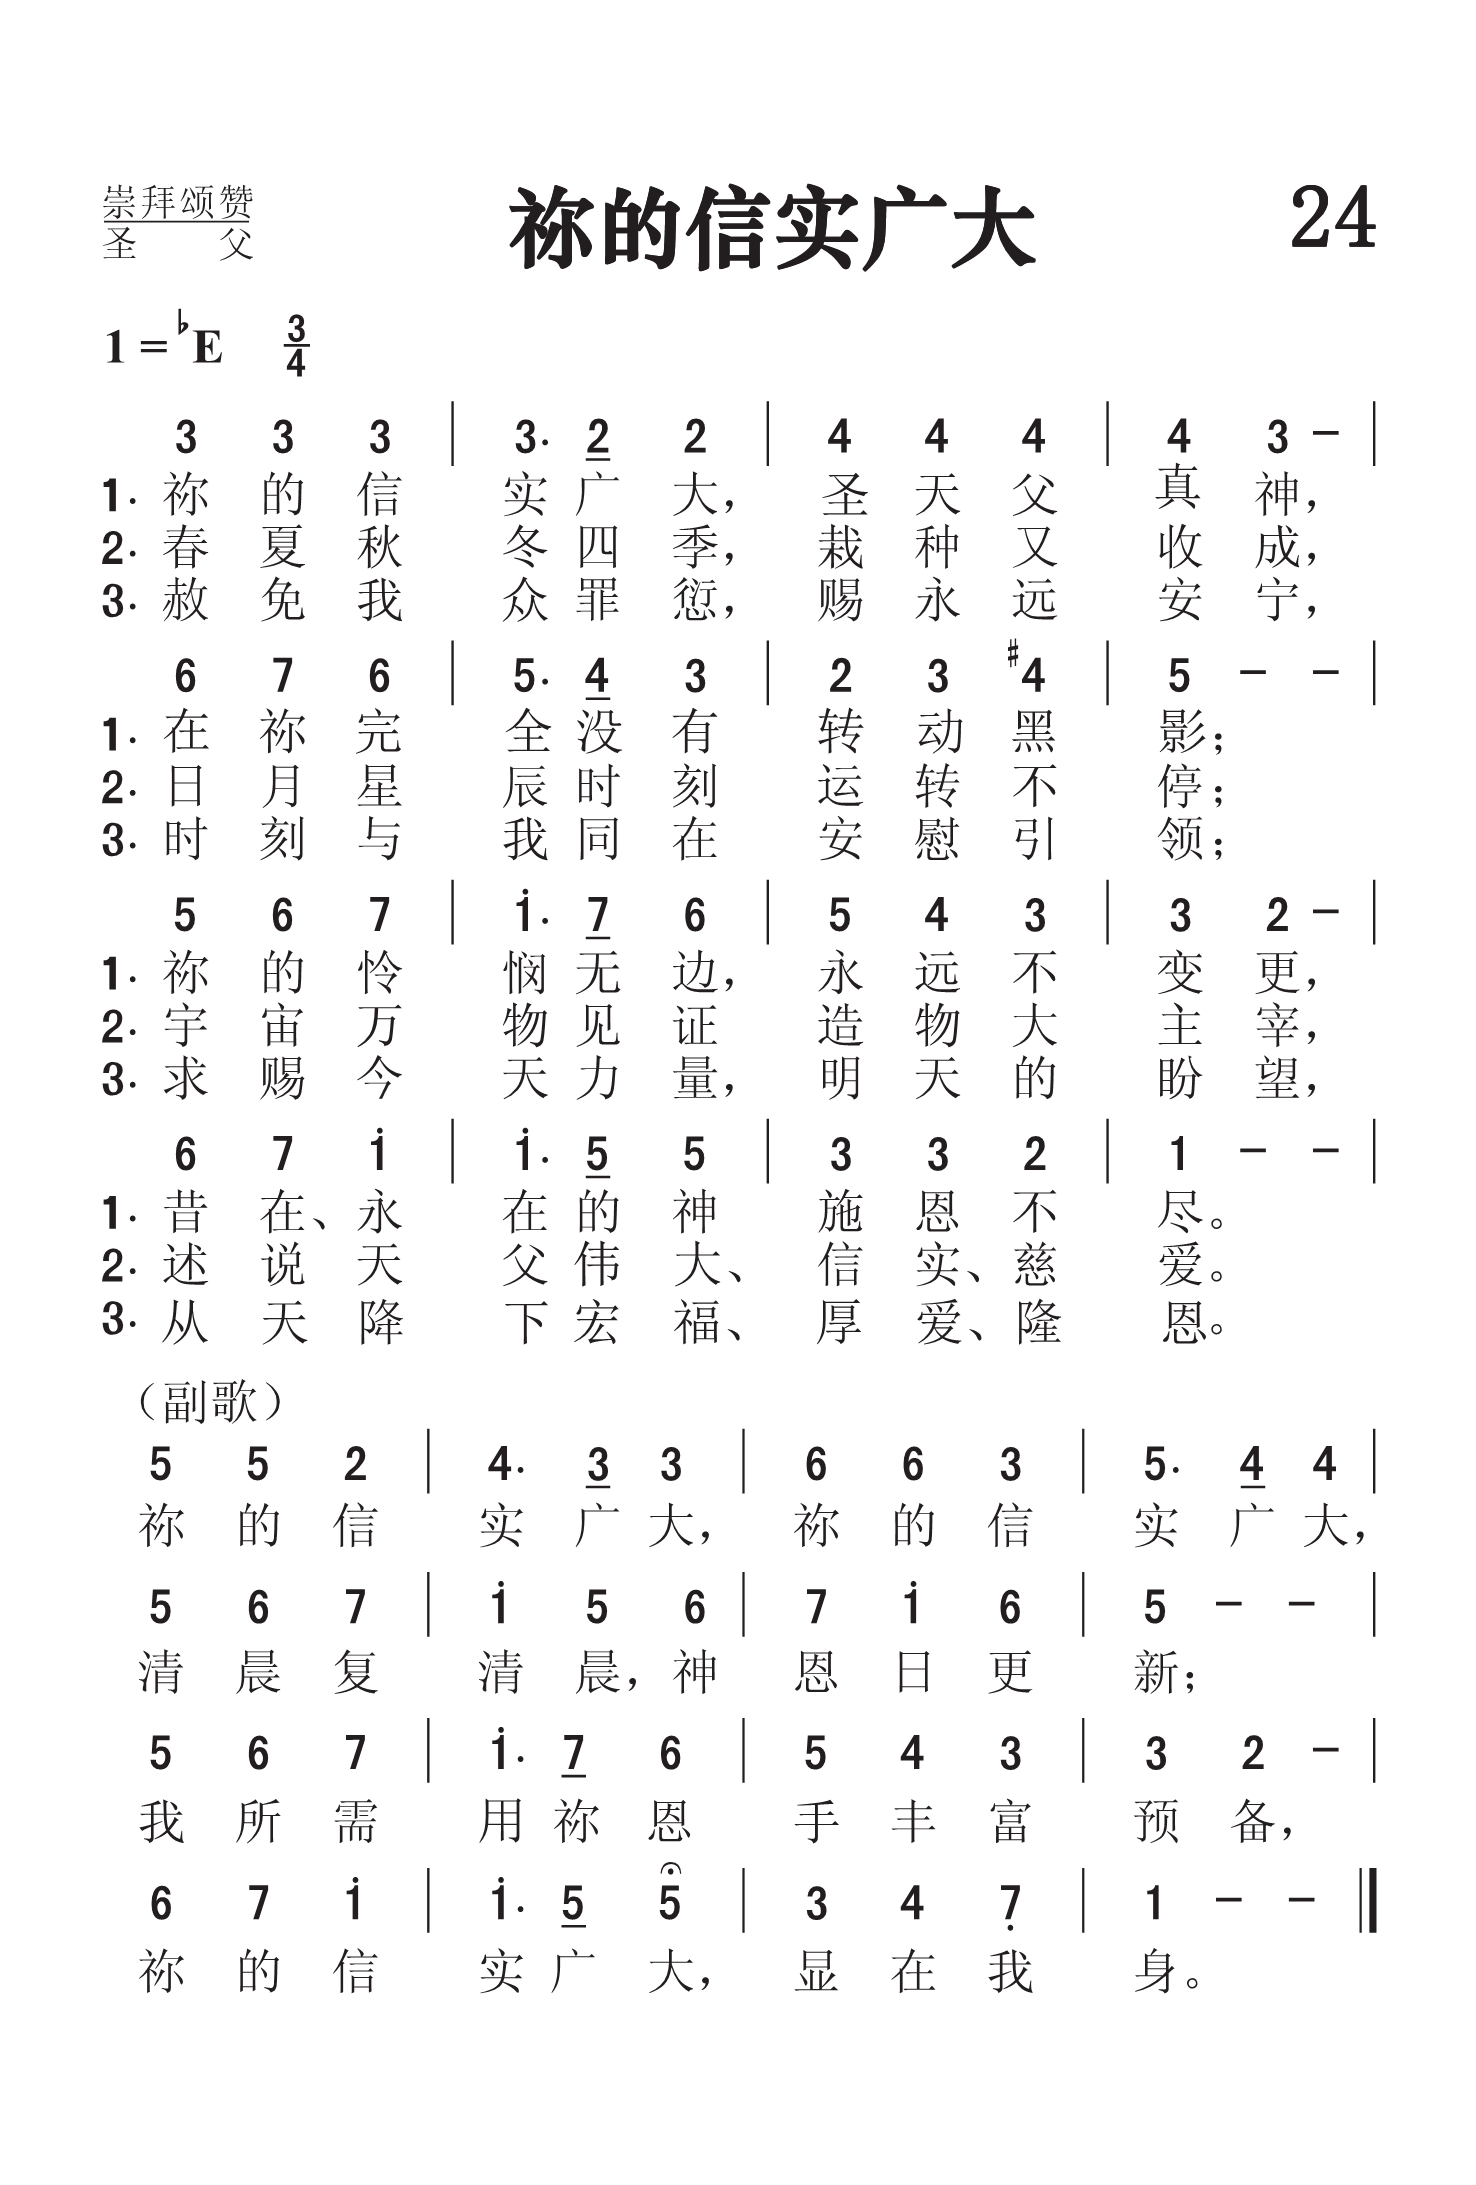 崇拜颂赞
圣 父
祢的信实广大
24
1 = ♭E 3/4
3 3 3 | 3. 2 2 | 4 4 4 | 4 3 – |
1. 祢 的 信 实 广 大， 圣 天 父 真 神，
2. 春 夏 秋 冬 四 季， 栽 种 又 收 成，
3. 赦 免 我 众 罪 愆， 赐 永 远 安 宁，
6 7 6 | 5. 4 3 | 2 3 ♯4 | 5 – – |
1. 在 祢 完 全 没 有 转 动 黑 影；
2. 日 月 星 辰 时 刻 运 转 不 停；
3. 时 刻 与 我 同 在 安 慰 引 领；
5 6 7 | 1̇. 7 6 | 5 4 3 | 3 2 – |
1. 祢 的 怜 悯 无 边， 永 远 不 变 更，
2. 宇 宙 万 物 见 证 造 物 大 主 宰，
3. 求 赐 今 天 力 量， 明 天 的 盼 望，
6 7 1̇ | 1̇. 5 5 | 3 3 2 | 1 – – |
1. 昔 在、永 在 的 神 施 恩 不 尽。
2. 述 说 天 父 伟 大、 信 实、慈 爱。
3. 从 天 降 下 宏 福、 厚 爱、隆 恩。
（副歌）
5 5 2 | 4. 3 3 | 6 6 3 | 5. 4 4 |
祢 的 信 实 广 大， 祢 的 信 实 广 大，
5 6 7 | 1̇ 5 6 | 7 1̇ 6 | 5 – – |
清 晨 复 清 晨，神 恩 日 更 新；
5 6 7 | 1̇. 7 6 | 5 4 3 | 3 2 – |
我 所 需 用 祢 恩 手 丰 富 预 备，
6 7 1̇ | 1̇. 5 5 | 3 4 7̣ | 1 – – ‖
祢 的 信 实 广 大， 显 在 我 身。